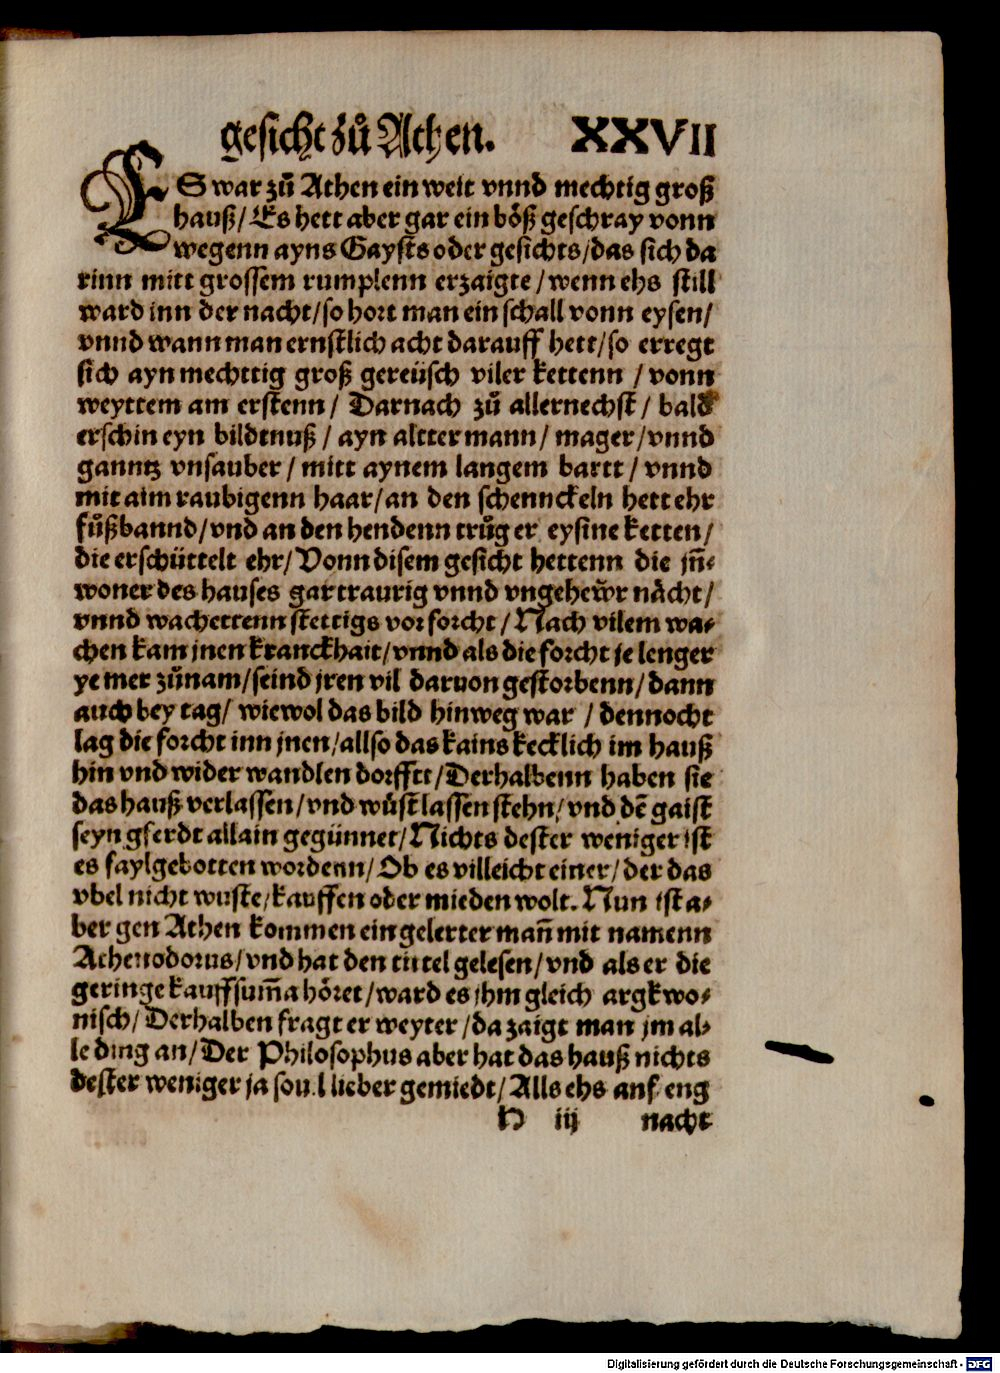 gesicht zů Athen. XXVII
ES war zů Athen ein weit vnnd mechtig groß
hauß/ Es hett aber gar ein böß geschray vonn
wegenn ayns Gaysts oder gesichts/das sich da
rinn mitt grossem rumplenn erzaigte/wenn ehs still
ward inn der nacht/so hort man ein schall vonn eysen/
vnnd wann man ernstlich acht darauff hett/so erregt
sich ayn mechttig groß gereüsch viler kettenn /vonn
weyttem am erstenn/ Darnach zů allernechst/ bald
erschin eyn bildtnuß/ ayn altter mann/ mager/vnnd
ganntz vnsauber/ mitt aynem langem bartt/ vnnd
mit aim raubigenn haar/an den schennckeln hett ehr
fůßbannd/vnd an den hendenn trůg er eysine ketten/
die erschüttelt ehr/Vonn disem gesicht hettenn die jn̄⸗
woner des hauses gar traurig vnnd vngehewr nächt/
vnnd wachettenn stettigs vor forcht/Nach vilem wa⸗
chen kam jnen kranckhait/vnnd als die forcht je lenger
ye mer zůnam/seind jren vil daruon gestorbenn/dann
auch bey tag/ wiewol das bild hinweg war / dennocht
lag die forcht inn jnen/allso das kains kecklich im hauß
hin vnd wider wandlen dorfftt/Derhalbenn haben sie
das hauß verlassen/vnd wůst lassen stehn/vnd dē gaist
seyn gferdt allain gegünnet/Nichts dester weniger ist
es faylgebotten wordenn/Ob es villeicht einer/der das
vbel nicht wuste/kauffen oder mieden wolt. Nun ist a⸗
ber gen Athen kommen ein gelerter man̄ mit namenn
Athenodorus/vnd hat den tittel gelesen/vnd als er die
geringe kauffsum̄a höret/ward es jhm gleich argkwo⸗
nisch/Derhalben fragt er weyter/da zaigt man jm al⸗
le ding an/Der Philosophus aber hat das hauß nichts
dester weniger ja souil lieber gemiedt/Alls ehs anfieng
iij nacht
Digitalisierung gefördert durch die Deutsche Forschungsgemeinschaft - DFG